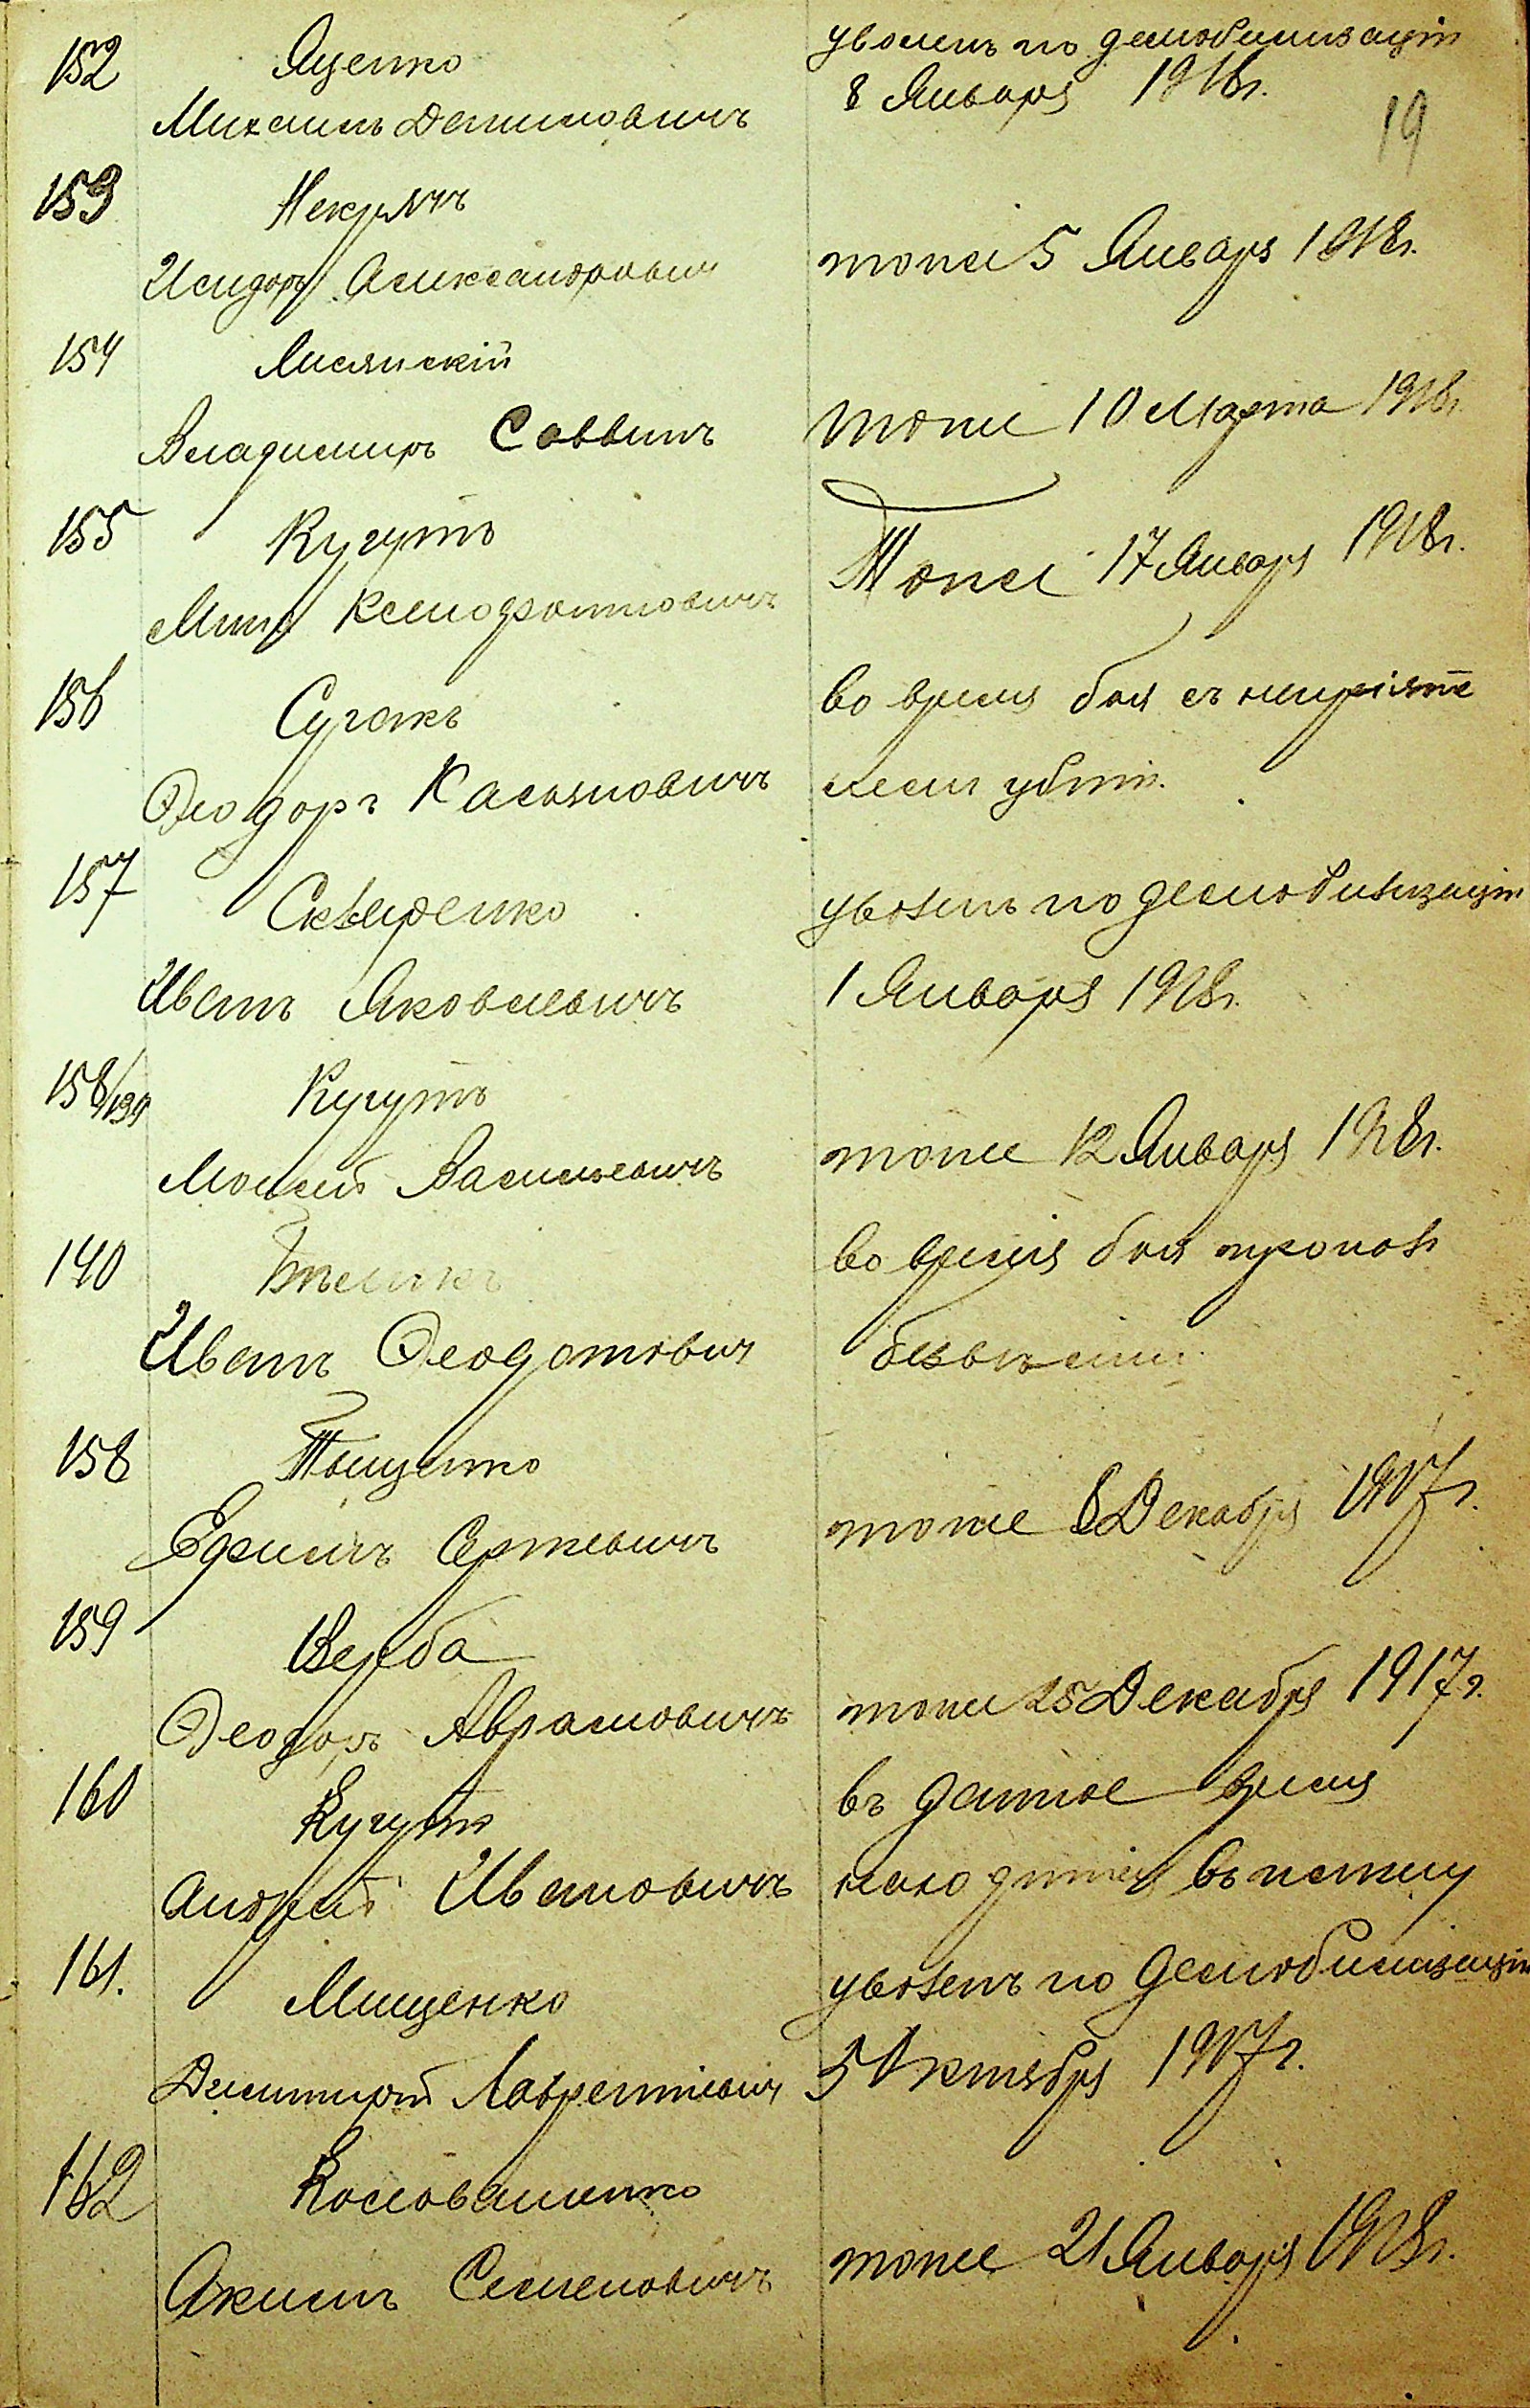 152 Яценко
Михаилъ Даниловичъ
уволенъ по демобилизаціи
8 Января 1918 г.
19
153 Некрячъ
Исидоръ Александрович
тоже 5 Января 1918 г.
154 Лисянскій
Владимиръ Саввичъ
тоже 10 Марта 1918 г.
155 Кугутъ
Ксенофонтовичъ
Тоже 17 Января 1918 г.
156 Сугакъ
Ѳеодоръ Касьяновичъ
во время боя съ непріяте
лемъ убитъ.
157 Скляренко
Иванъ Яковлевичъ
уволенъ по демобилизаціи
1 Января 1918 г.
158/139 Кугутъ
Моисей Васильевичъ
тоже 12 Января 1918 г.
140
Иванъ Ѳеодотович
во время боя пропалъ
безъ вѣсти
158 Тыщенко
Ефимъ Сергѣевичъ
тоже 8 Декабря 1917 г.
159 Верба
Ѳеодоръ Аврамовичъ
тоже 25 Декабря 1917 г.
160 Кугутъ
Андрей Ивановичъ
въ данное время
находится въ плѣну
161. Мищенко
Димитрій Лаврентіевич
уволенъ по демобилизаціи
5 Октября 1917 г.
162 Коломашенко
Акимъ Семеновичъ
тоже 21 Января 1918 г.